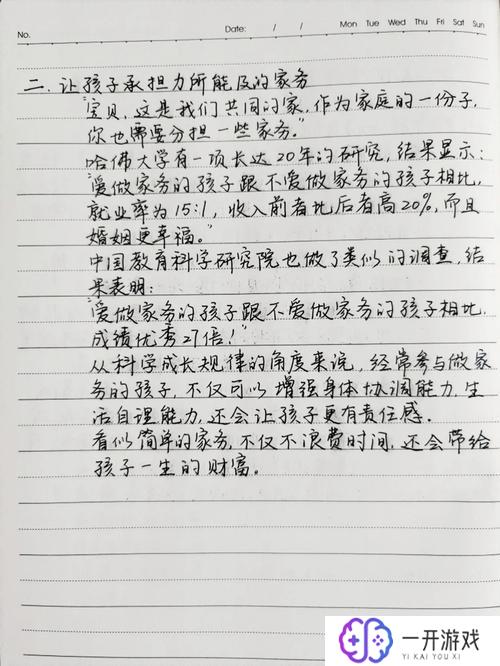 No.
Date: / /
Mon Tue Wed Thu Fri Sat Sun
二.让孩子承担力所能及的家务
"宝贝,这是我们共同的家,作为家庭的一份子,
你也需要分担一些家务。"
哈佛大学有一项长达20年的研究,结果显示:
"爱做家务的孩子跟不爱做家务的孩子相比,
就业率为15:1,收入前者比后者高20%,而且
婚姻更幸福。"
中国教育科学研究院也做了类似的调查,结
果表明:
"爱做家务的孩子跟不爱做家务的孩子相比,
成绩优秀27倍!"
从科学成长规律的角度来说,经常参与做家
务的孩子,不仅可以增强身体协调能力,生
活自理能力,还会让孩子更有责任感.
看似简单的家务,不仅不浪费时间,还会带给
孩子一生的财富。
一开游戏
YI KAI YOU XI